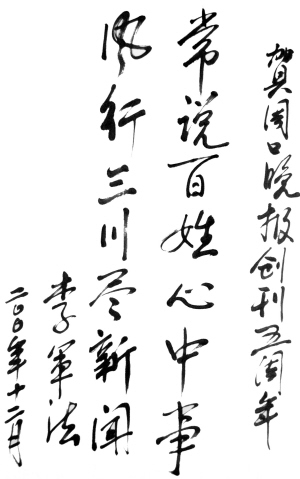 贺周口晚报创刊五周年
常说百姓心中事
风行三川尽新闻
李军法
二〇〇〇年十二月